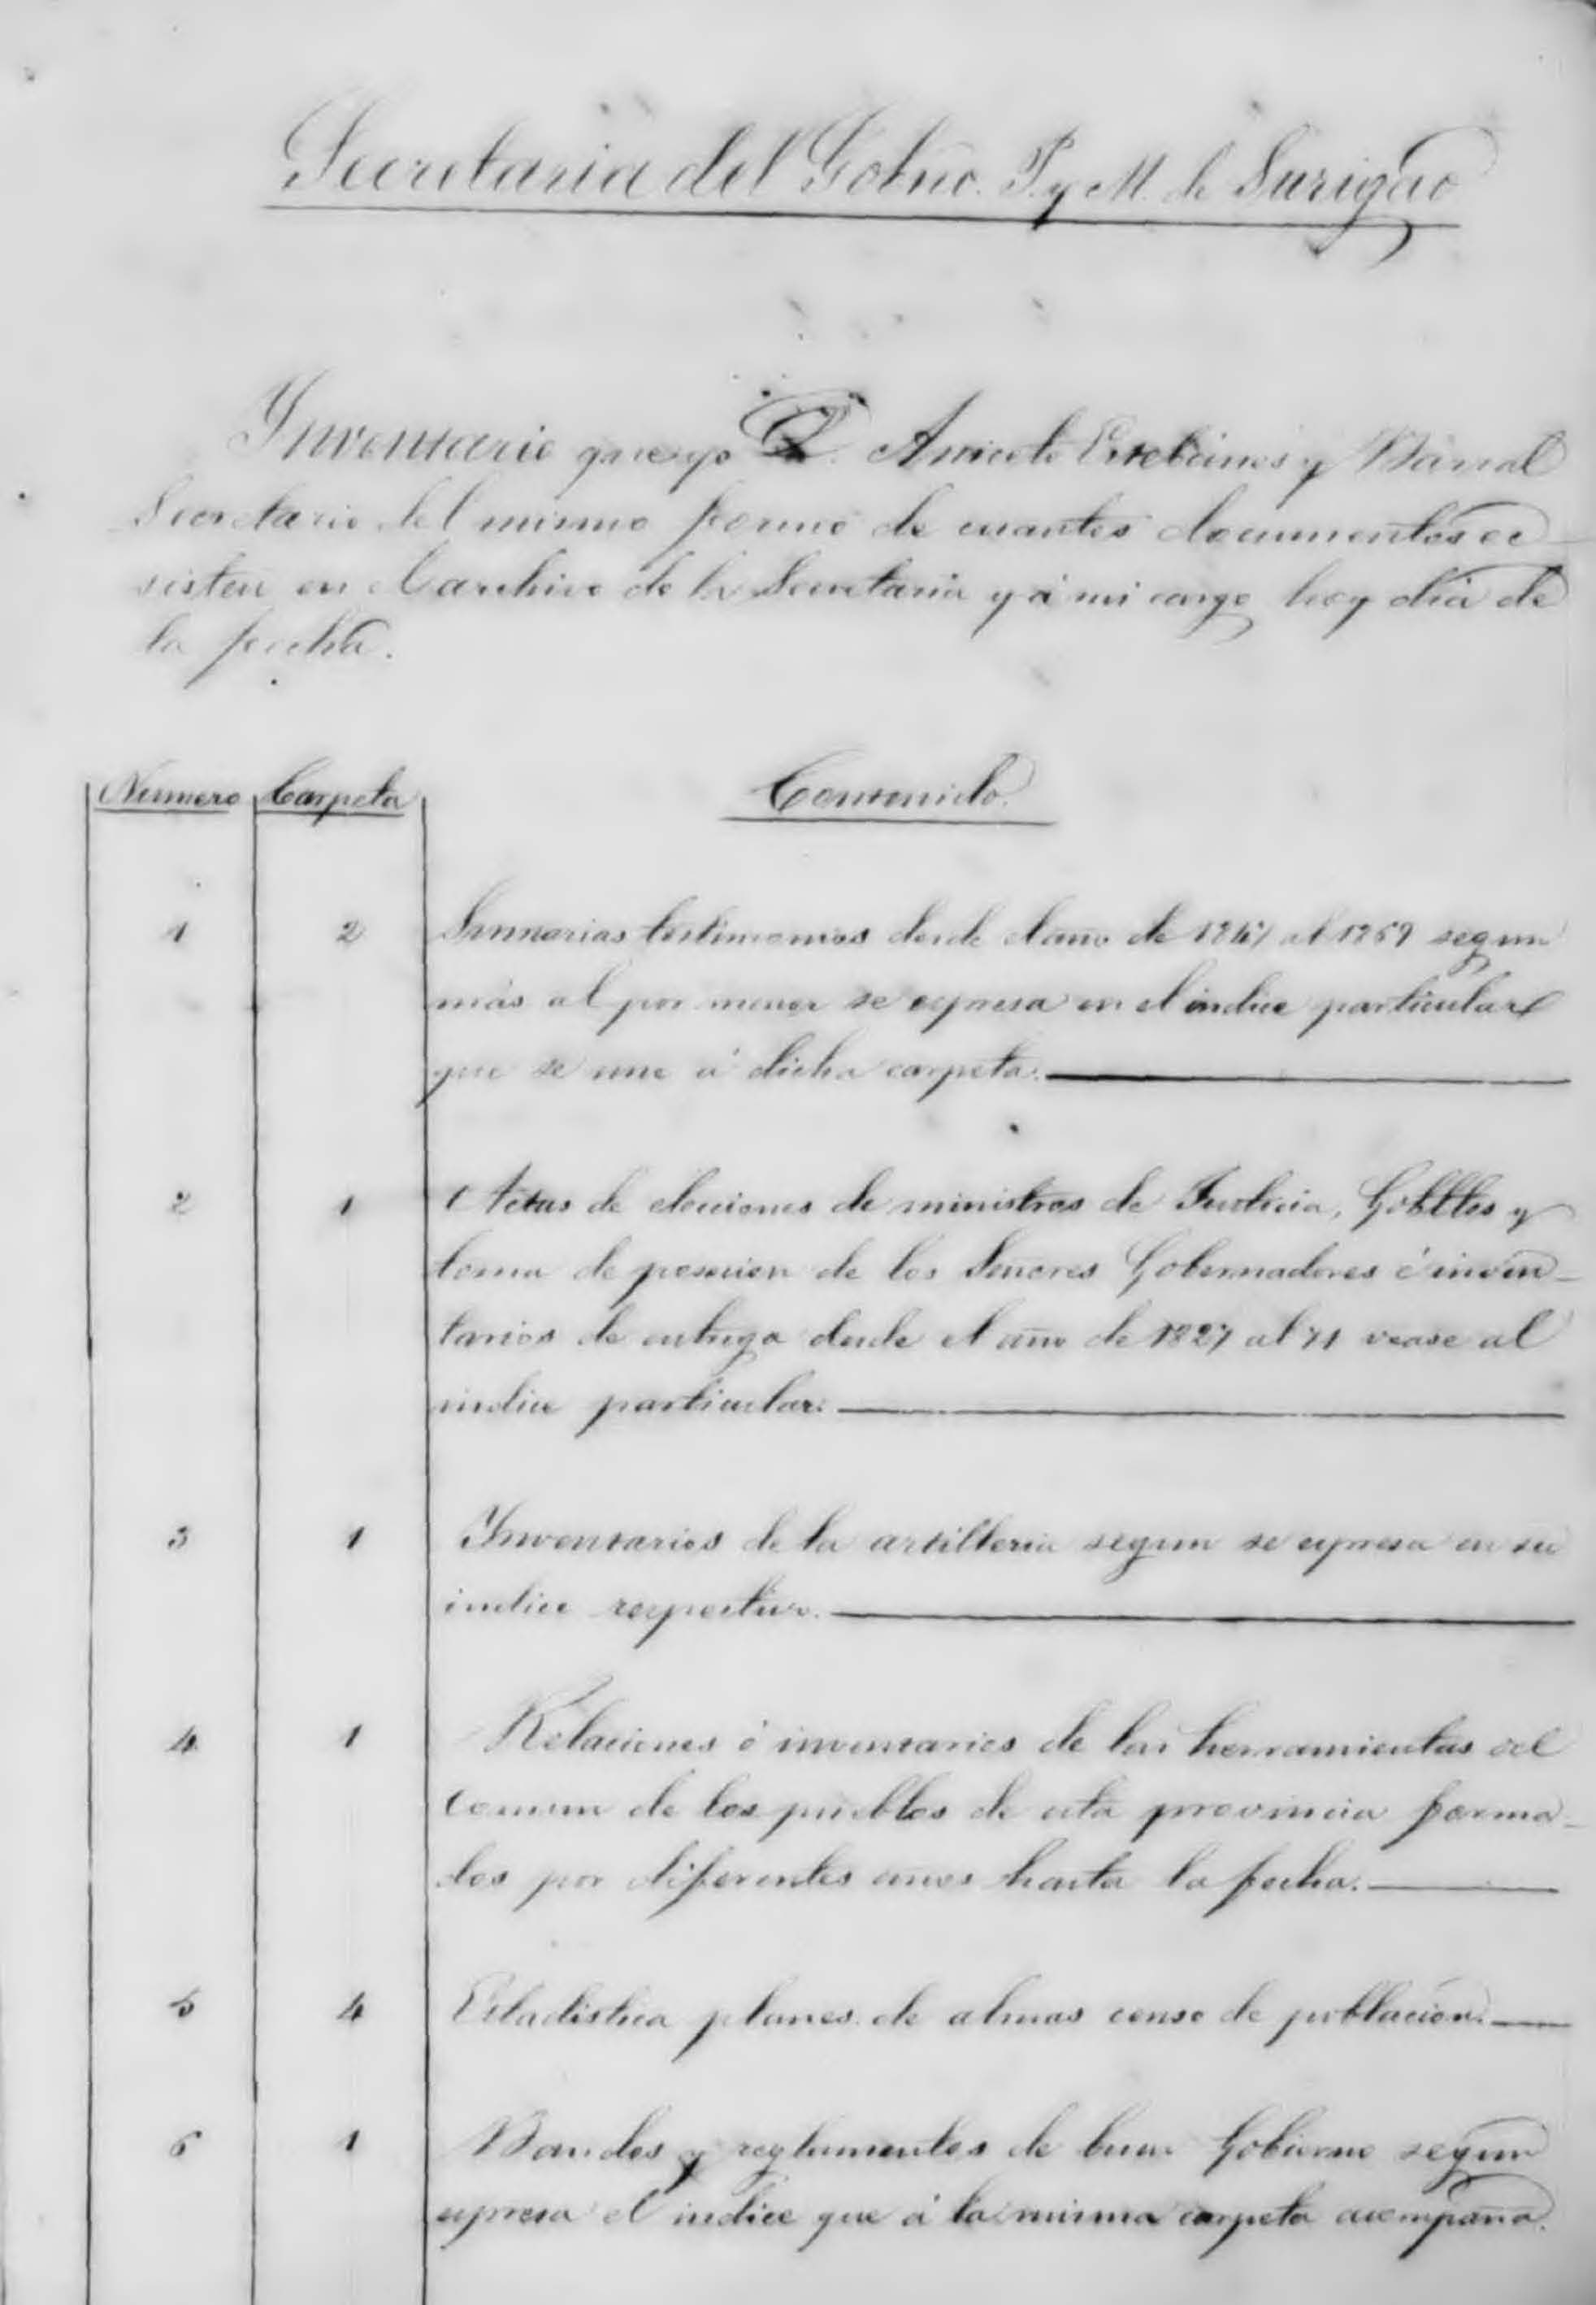 Secretaria del Gobno. P. y M. de Surigao
Inventario que yo D. Aniceto y
Secretario del mismo formo de cuantos documentos ec
sisten en el archivo de la Secretaria y á mi cargo hoy dia de
la fecha.
Numero Carpeta Contenido.
1 2 Sumarias testimonios desde el año de al 1869 segun
más al por menor se espresa en el indice particular
que se une á dicha carpeta.
2 1 Actas de elecciones de ministros de Justicia, Gobllos y
toma de posesion de los Señores Gobernadores é inven-
tarios de entrega desde el año de 1827 al 71 vease al
indice particular.
3 1 Inventarios de la artilleria segun se espresa en su
indice respectivo.
4 1 Relaciones é inventarios de las herramientas del
comun de los pueblos de esta provincia forma-
dos por diferentes años hasta la fecha.
5 4 Estadistica planes de almas censo de poblacion.
6 1 Bandos y reglamentos de buen Gobierno segun
espresa el indice que á la misma carpeta acompaña.